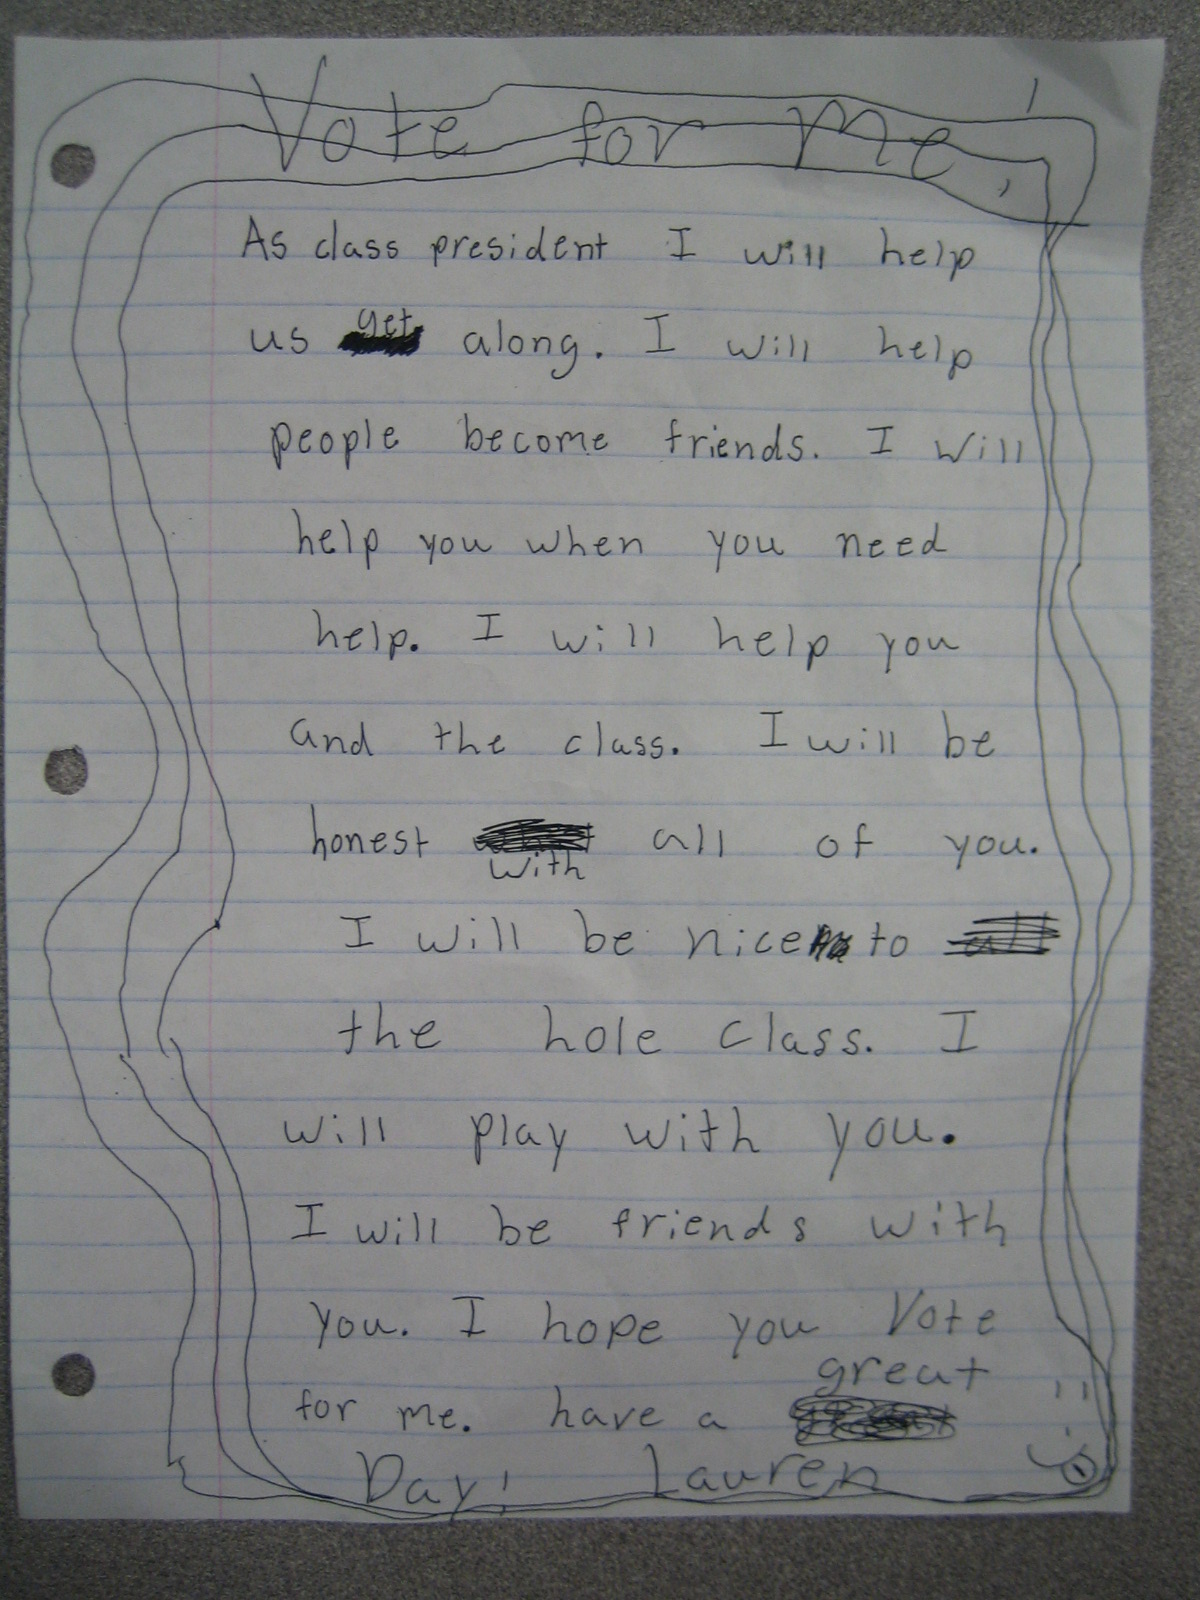 Vote for Me!
As class president I will help
us get along. I will help
people become friends. I will
help you when you need
help. I will help you
and the class. I will be
honest with all of you.
I will be nice to
the hole class. I
will play with you.
I will be friends with
you. I hope you Vote
for me. have a great
Day! Lauren